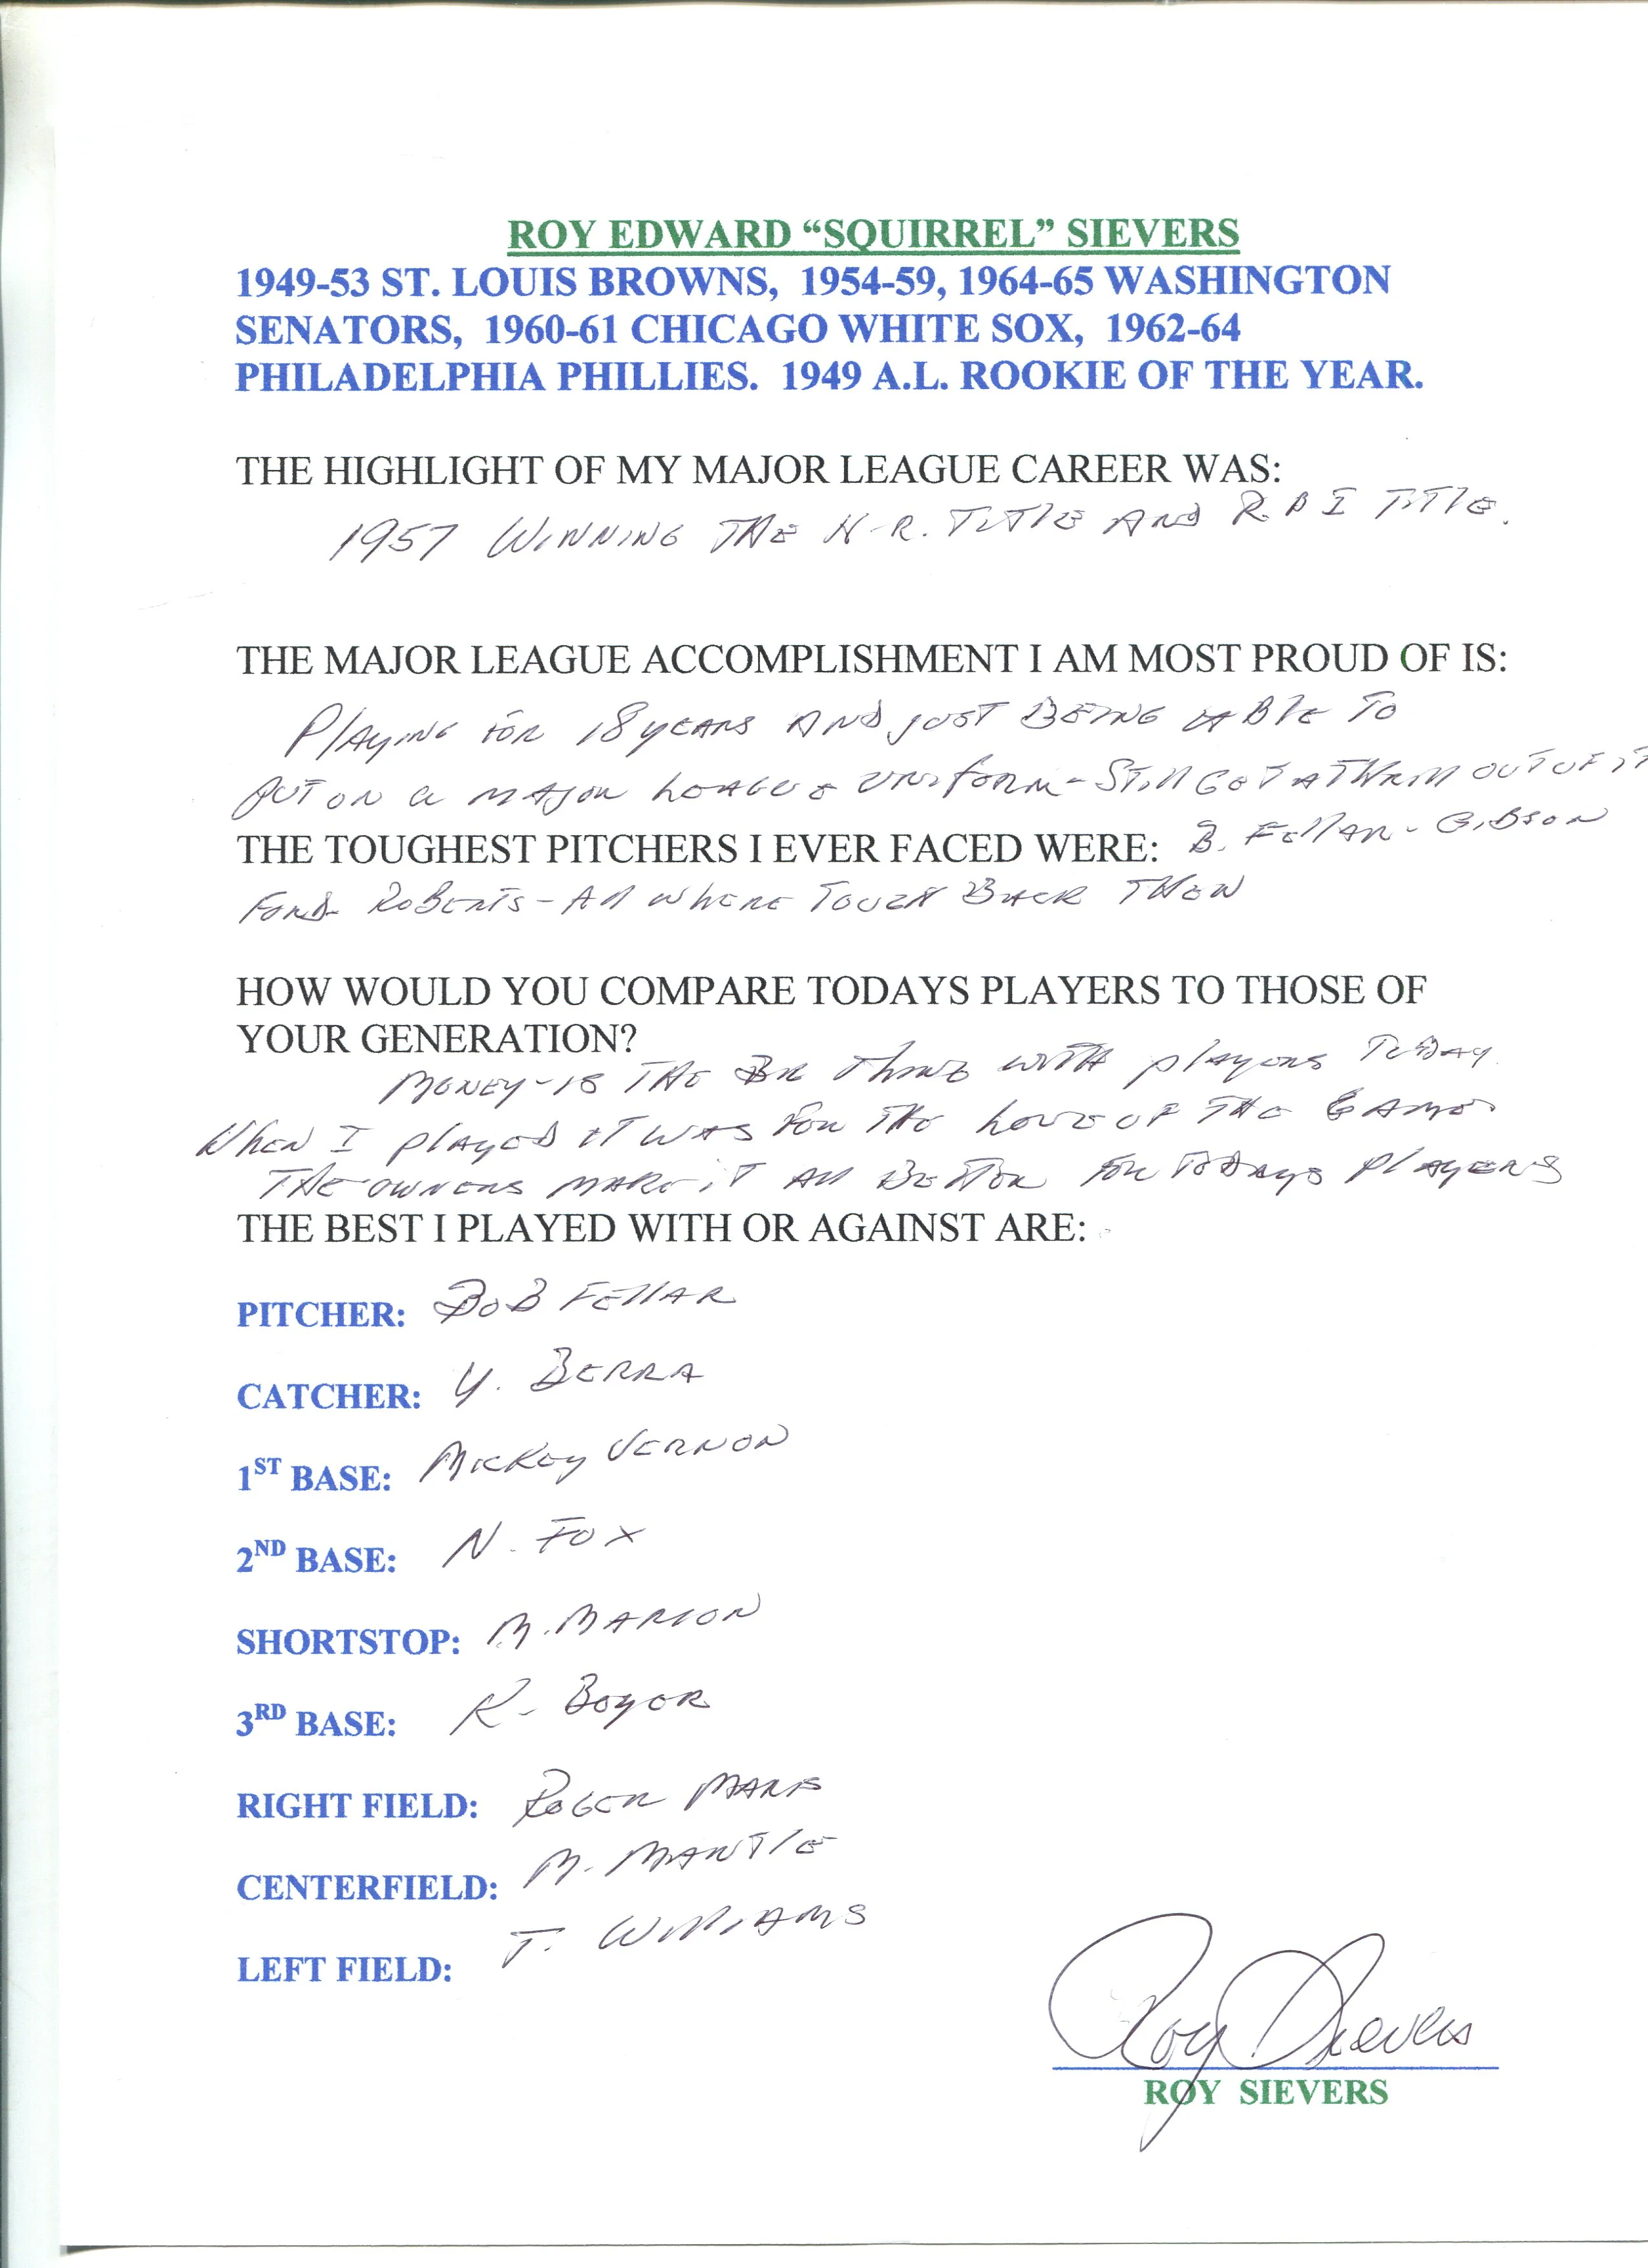 ROY EDWARD “SQUIRREL” SIEVERS
1949-53 ST. LOUIS BROWNS, 1954-59, 1964-65 WASHINGTON
SENATORS, 1960-61 CHICAGO WHITE SOX, 1962-64
PHILADELPHIA PHILLIES. 1949 A.L. ROOKIE OF THE YEAR.
THE HIGHLIGHT OF MY MAJOR LEAGUE CAREER WAS:
1957 WINNING THE H-R. TITLE AND R B I TITLE.
THE MAJOR LEAGUE ACCOMPLISHMENT I AM MOST PROUD OF IS:
PlAYING FOR 18 YEARS AND JUST BEING ABLE TO
PUT ON a MAJOR LEAGUE UNIFORM - Still GET A THRILL OUT OF IT
THE TOUGHEST PITCHERS I EVER FACED WERE: B. FELLAR - GIBSON
FORD - ROBERTS - All WHERE TOUGH BACK THEN
HOW WOULD YOU COMPARE TODAYS PLAYERS TO THOSE OF
YOUR GENERATION?
MONEY - IS THE THING WITH PLAYERS TODAY.
WHEN I PLAYED IT WAS FOR THE LOVE OF THE GAME
THE OWNERS MAKE IT All BETTER FOR TODAYS PLAYERS
THE BEST I PLAYED WITH OR AGAINST ARE:
PITCHER: BOB FELLAR
CATCHER: Y. BERRA
1ST BASE: MICKEY VERNON
2ND BASE: N. FOX
SHORTSTOP: M. MARION
3RD BASE: K. BOYOR
RIGHT FIELD: ROGER MARIS
CENTERFIELD: M. MANTLE
LEFT FIELD: T. WILLIAMS
Roy Sievers
ROY SIEVERS